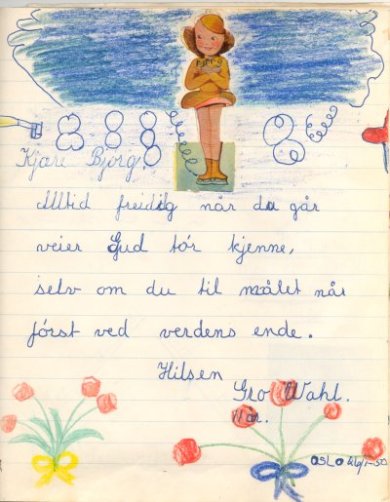 Kjære Bjørg.
Alltid freidig når du går
veier Gud tór kjenne,
selv om du til målet når
fórst ved verdens ende.
Hilsen
Gro Wahl.
11 år.
OSLO